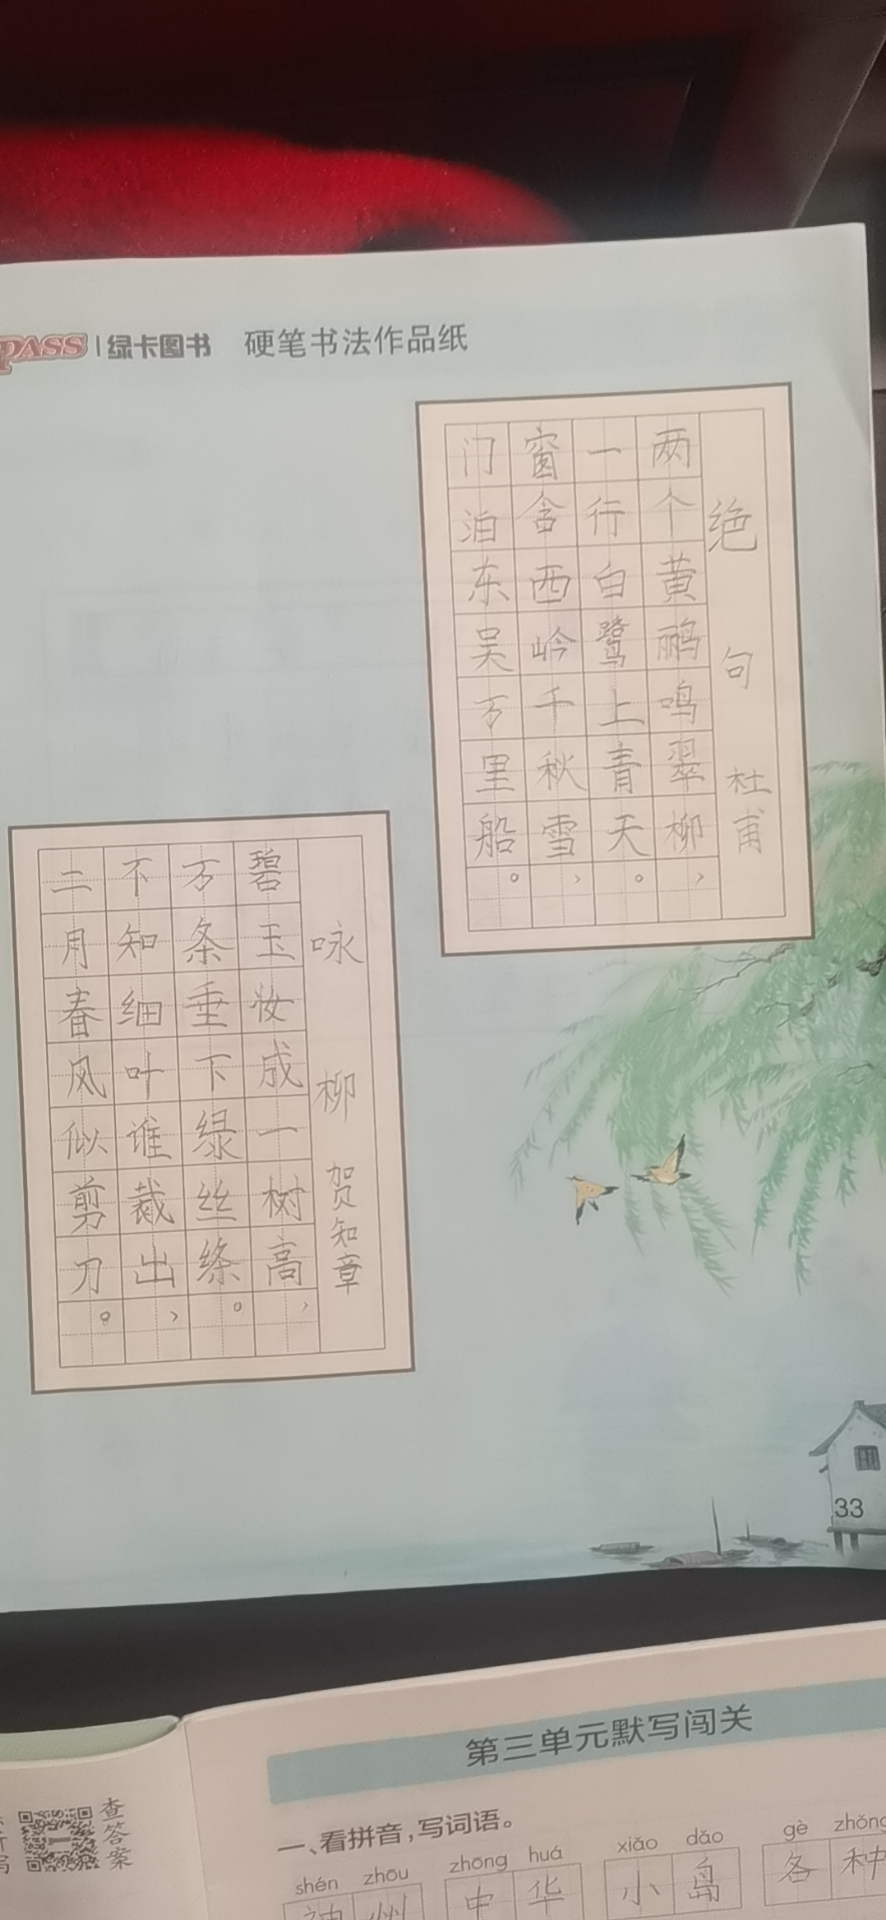 PASS 绿卡图书 硬笔书法作品纸
绝句
杜甫
两个黄鹂鸣翠柳，
一行白鹭上青天。
窗含西岭千秋雪，
门泊东吴万里船。
咏柳
贺知章
碧玉妆成一树高，
万条垂下绿丝绦。
不知细叶谁裁出，
二月春风似剪刀。
33
第三单元默写闯关
查答案
一、看拼音，写词语。
shén zhōu zhōng huá xiǎo dǎo gè zhǒng
神州 中华 小岛 各种